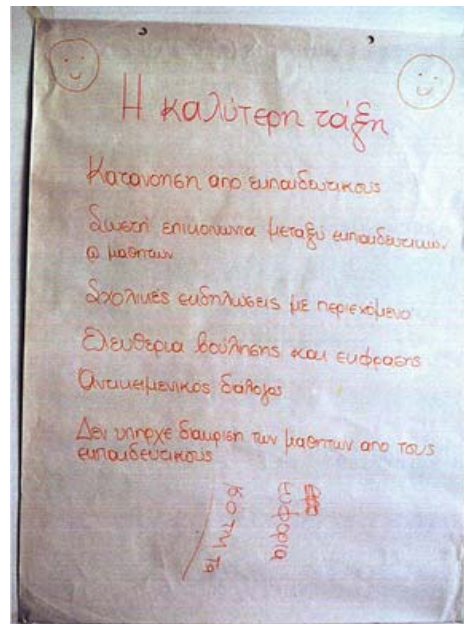 Η καλύτερη τάξη
Κατανοηση απο εκπαιδευτικους
Σωστή επικοινωνια μεταξύ εκπαιδευτικων
@ μαθητων
Σχολικές εκδηλωσεις με περιεχόμενο
Ελευθερια βούλησης και εκφρασης
Αντικειμενικος διαλογος
Δεν υπηρχε διακριση των μαθητων απο τους
εκπαιδευτικους
ευφορια